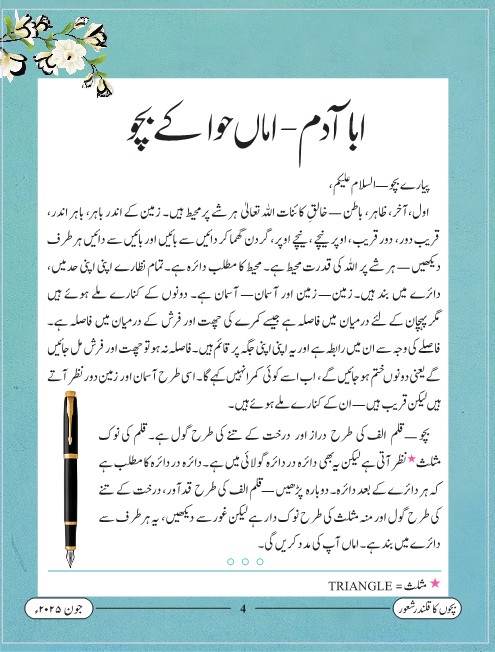 ابا آدم – اماں حوا کے بچو
پیارے بچو — السلام علیکم،
اول، آخر، ظاہر، باطن — خالقِ کائنات اللہ تعالیٰ ہر شے پر محیط ہیں۔ زمین کے اندر باہر، باہر اندر،
قریب دور، دور قریب، اوپر نیچے، نیچے اوپر، گردن گھما کر دائیں سے بائیں اور بائیں سے دائیں ہر طرف
دیکھیں — ہر شے پر اللہ کی قدرت محیط ہے۔ محیط کا مطلب دائرہ ہے۔ تمام نظارے اپنی اپنی حد میں،
دائرے میں بند ہیں۔ زمین — زمین اور آسمان — آسمان ہے۔ دونوں کے کنارے ملے ہوئے ہیں
مگر پہچان کے لئے درمیان میں فاصلہ ہے جیسے کمرے کی چھت اور فرش کے درمیان میں فاصلہ ہے۔
فاصلے کی وجہ سے ان میں رابطہ ہے اور یہ اپنی اپنی جگہ پر قائم ہیں۔ فاصلہ نہ ہو تو چھت اور فرش مل جائیں
گے یعنی دونوں ختم ہو جائیں گے، اب اسے کوئی کمرا نہیں کہے گا۔ اسی طرح آسمان اور زمین دور نظر آتے
ہیں لیکن قریب ہیں — ان کے کنارے ملے ہوئے ہیں۔
بچو — قلم الف کی طرح دراز اور درخت کے تنے کی طرح گول ہے۔ قلم کی نوک
مثلث★ نظر آتی ہے لیکن یہ بھی دائرہ در دائرہ گولائی میں ہے۔ دائرہ در دائرہ کا مطلب ہے
کہ ہر دائرے کے بعد دائرہ۔ دوبارہ پڑھیں — قلم الف کی طرح قد آور، درخت کے تنے
کی طرح گول اور منہ مثلث کی طرح نوک دار ہے لیکن غور سے دیکھیں، یہ ہر طرف سے
دائرے میں بند ہے۔ اماں آپ کی مدد کریں گی۔
★ مثلث = TRIANGLE
بچوں کا قلندر شعور 4 جون ۲۰۲۵ء